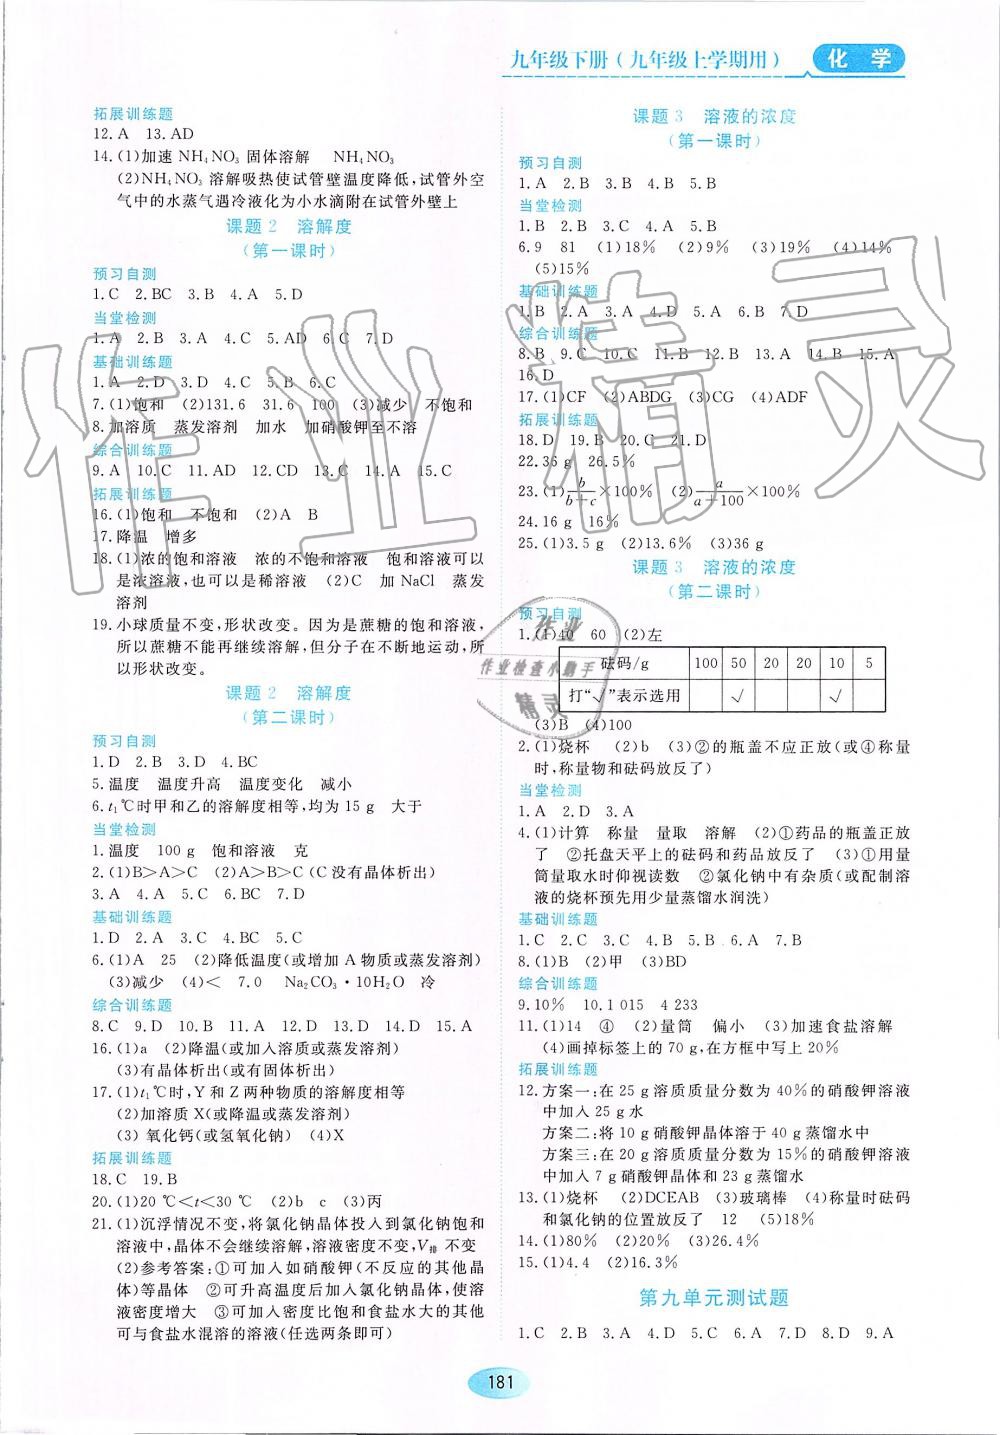 九年级下册(九年级上学期用) 化 学
拓展训练题
12.A 13.AD
14.(1)加速 NH₄NO₃ 固体溶解 NH₄NO₃
(2)NH₄NO₃ 溶解吸热使试管壁温度降低,试管外空
气中的水蒸气遇冷液化为小水滴附在试管外壁上
课题 2 溶解度
(第一课时)
预习自测
1.C 2.BC 3.B 4.A 5.D
当堂检测
1.A 2.B 3.A 4.C 5.AD 6.C 7.D
基础训练题
1.A 2.D 3.D 4.C 5.B 6.C
7.(1)饱和 (2)131.6 31.6 100 (3)减少 不饱和
8.加溶质 蒸发溶剂 加水 加硝酸钾至不溶
综合训练题
9.A 10.C 11.AD 12.CD 13.C 14.A 15.C
拓展训练题
16.(1)饱和 不饱和 (2)A B
17.降温 增多
18.(1)浓的饱和溶液 浓的不饱和溶液 饱和溶液可以
是浓溶液,也可以是稀溶液 (2)C 加 NaCl 蒸发
溶剂
19.小球质量不变,形状改变。因为是蔗糖的饱和溶液,
所以蔗糖不能再继续溶解,但分子在不断地运动,所
以形状改变。
课题 2 溶解度
(第二课时)
预习自测
1.D 2.B 3.D 4.BC
5.温度 温度升高 温度变化 减小
6.t₁℃时甲和乙的溶解度相等,均为 15 g 大于
当堂检测
1.温度 100 g 饱和溶液 克
2.(1)B>A>C (2)A>B>C(C 没有晶体析出)
3.A 4.A 5.C 6.BC 7.D
基础训练题
1.D 2.A 3.C 4.BC 5.C
6.(1)A 25 (2)降低温度(或增加 A 物质或蒸发溶剂)
(3)减少 (4)< 7.0 Na₂CO₃·10H₂O 冷
综合训练题
8.C 9.D 10.B 11.A 12.D 13.D 14.D 15.A
16.(1)a (2)降温(或加入溶质或蒸发溶剂)
(3)有晶体析出(或有固体析出)
17.(1)t₁℃时,Y 和 Z 两种物质的溶解度相等
(2)加溶质 X(或降温或蒸发溶剂)
(3) 氧化钙(或氢氧化钠) (4)X
拓展训练题
18.C 19.B
20.(1)20 ℃<t<30 ℃ (2)b c (3)丙
21.(1)沉浮情况不变,将氯化钠晶体投入到氯化钠饱和
溶液中,晶体不会继续溶解,溶液密度不变,V排 不变
(2)参考答案:①可加入如硝酸钾(不反应的其他晶
体)等晶体 ②可升高温度后加入氯化钠晶体,使溶
液密度增大 ③可加入密度比饱和食盐水大的其他
可与食盐水混溶的溶液(任选两条即可)
课题 3 溶液的浓度
(第一课时)
预习自测
1.A 2.B 3.B 4.B 5.B
当堂检测
1.B 2.B 3.C 4.A 5.B
6.9 81 (1)18% (2)9% (3)19% (4)14%
(5)15%
基础训练题
1.B 2.A 3.A 4.D 5.A 6.B 7.D
综合训练题
8.B 9.C 10.C 11.B 12.B 13.A 14.B 15.A
16.D
17.(1)CF (2)ABDG (3)CG (4)ADF
拓展训练题
18.D 19.B 20.C 21.D
22.36 g 26.5%
23.(1)b/(b+c)×100% (2)a/(a+100)×100%
24.16 g 16%
25.(1)3.5 g (2)13.6% (3)36 g
课题 3 溶液的浓度
(第二课时)
预习自测
1.(1)40 60 (2)左
砝码/g 100 50 20 20 10 5
打“√”表示选用 √ √
(3)B (4)100
2.(1)烧杯 (2)b (3)②的瓶盖不应正放(或④称量
时,称量物和砝码放反了)
当堂检测
1.A 2.D 3.A
4.(1)计算 称量 量取 溶解 (2)①药品的瓶盖正放
了 ②托盘天平上的砝码和药品放反了 (3)①用量
筒量取水时仰视读数 ②氯化钠中有杂质(或配制溶
液的烧杯预先用少量蒸馏水润洗)
基础训练题
1.C 2.C 3.C 4.B 5.B 6.A 7.B
8.(1)B (2)甲 (3)BD
综合训练题
9.10% 10.1 015 4 233
11.(1)14 ④ (2)量筒 偏小 (3)加速食盐溶解
(4)画掉标签上的 70 g,在方框中写上 20%
拓展训练题
12.方案一:在 25 g 溶质质量分数为 40%的硝酸钾溶液
中加入 25 g 水
方案二:将 10 g 硝酸钾晶体溶于 40 g 蒸馏水中
方案三:在 20 g 溶质质量分数为 15%的硝酸钾溶液
中加入 7 g 硝酸钾晶体和 23 g 蒸馏水
13.(1)烧杯 (2)DCEAB (3)玻璃棒 (4)称量时砝码
和氯化钠的位置放反了 12 (5)18%
14.(1)80% (2)20% (3)26.4%
15.(1)4.4 (2)16.3%
第九单元测试题
1.C 2.B 3.A 4.D 5.C 6.A 7.D 8.D 9.A
181
作业精灵
作业
作业检查小助手
精灵